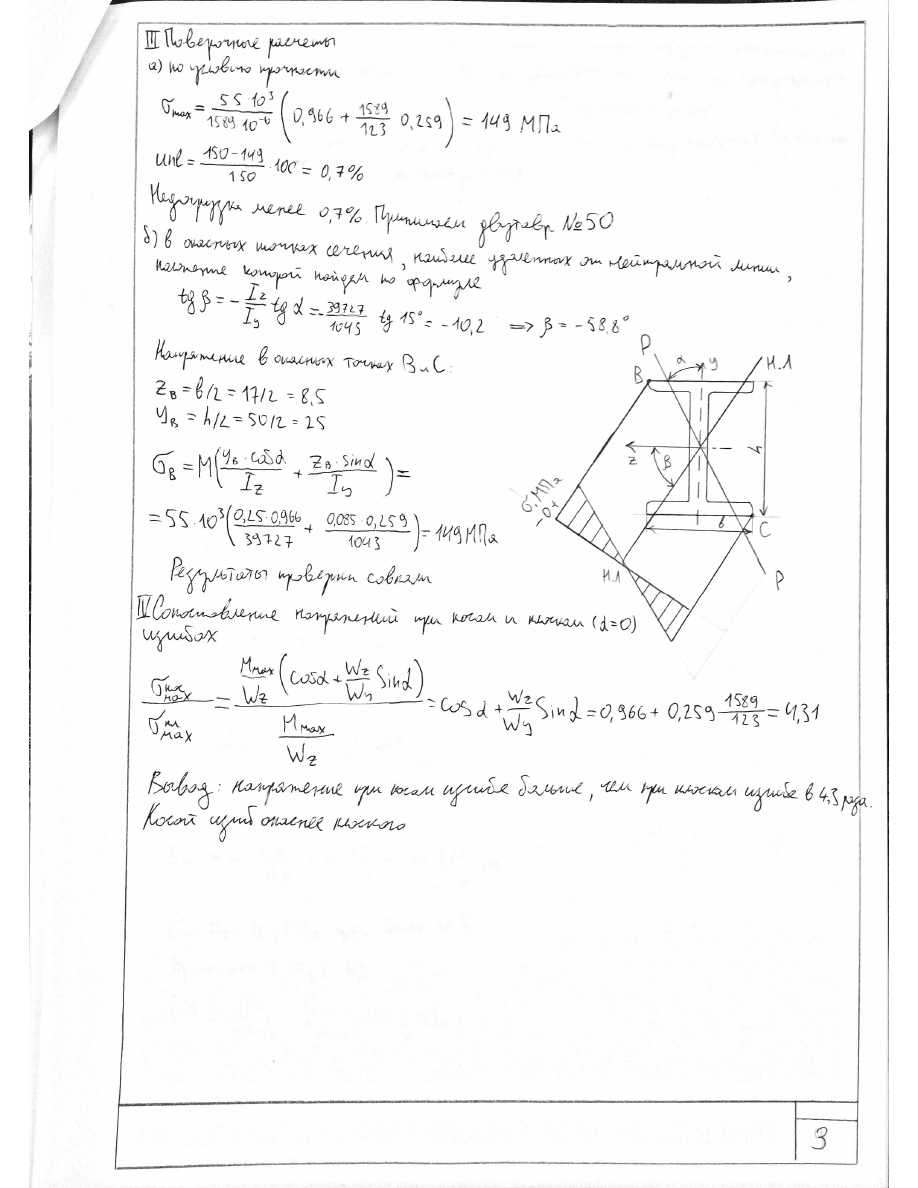 III Поверочные расчеты
а) по условию прочности
σmax = 55·10³/1589·10⁻⁶ (0,966 + 1589/123 0,259) = 149 МПа
инб = 150-149/150 · 100 = 0,7%
Недогрузка менее 0,7%. Принимаем двутавр №50
б) в опасных точках сечения, наиболее удаленных от нейтральной линии,
положение которой найдем по формуле
tg β = - Iz/Iy tg α = 39727/1043 tg 15° = -10,2 => β = -58,8°
Напряжение в опасных точках В и С:
zB = b/2 = 17/2 = 8,5
yB = h/2 = 50/2 = 25
σB = M(yB·cosα/Iz + zB·sinα/Iy) =
= 55·10³(0,25·0,966/39727 + 0,085·0,259/1043) = 149 МПа
Результаты проверки совпали
P
α
y
Н.Л
B
z
β
h
b
C
σ, МПа
- 0 +
НЛ
P
IV Сопоставление напряжений при косом и плоском (α=0)
изгибах
σкс max/σпл max = Mmax/Wz (cosα + Wz/Wy Sinα) / Mmax/Wz = cosα + Wz/Wy Sinα = 0,966 + 0,259 · 1589/123 = 4,31
Вывод: напряжение при косом изгибе больше, чем при плоском изгибе в 4,3 раза.
Косой изгиб опаснее плоского
3